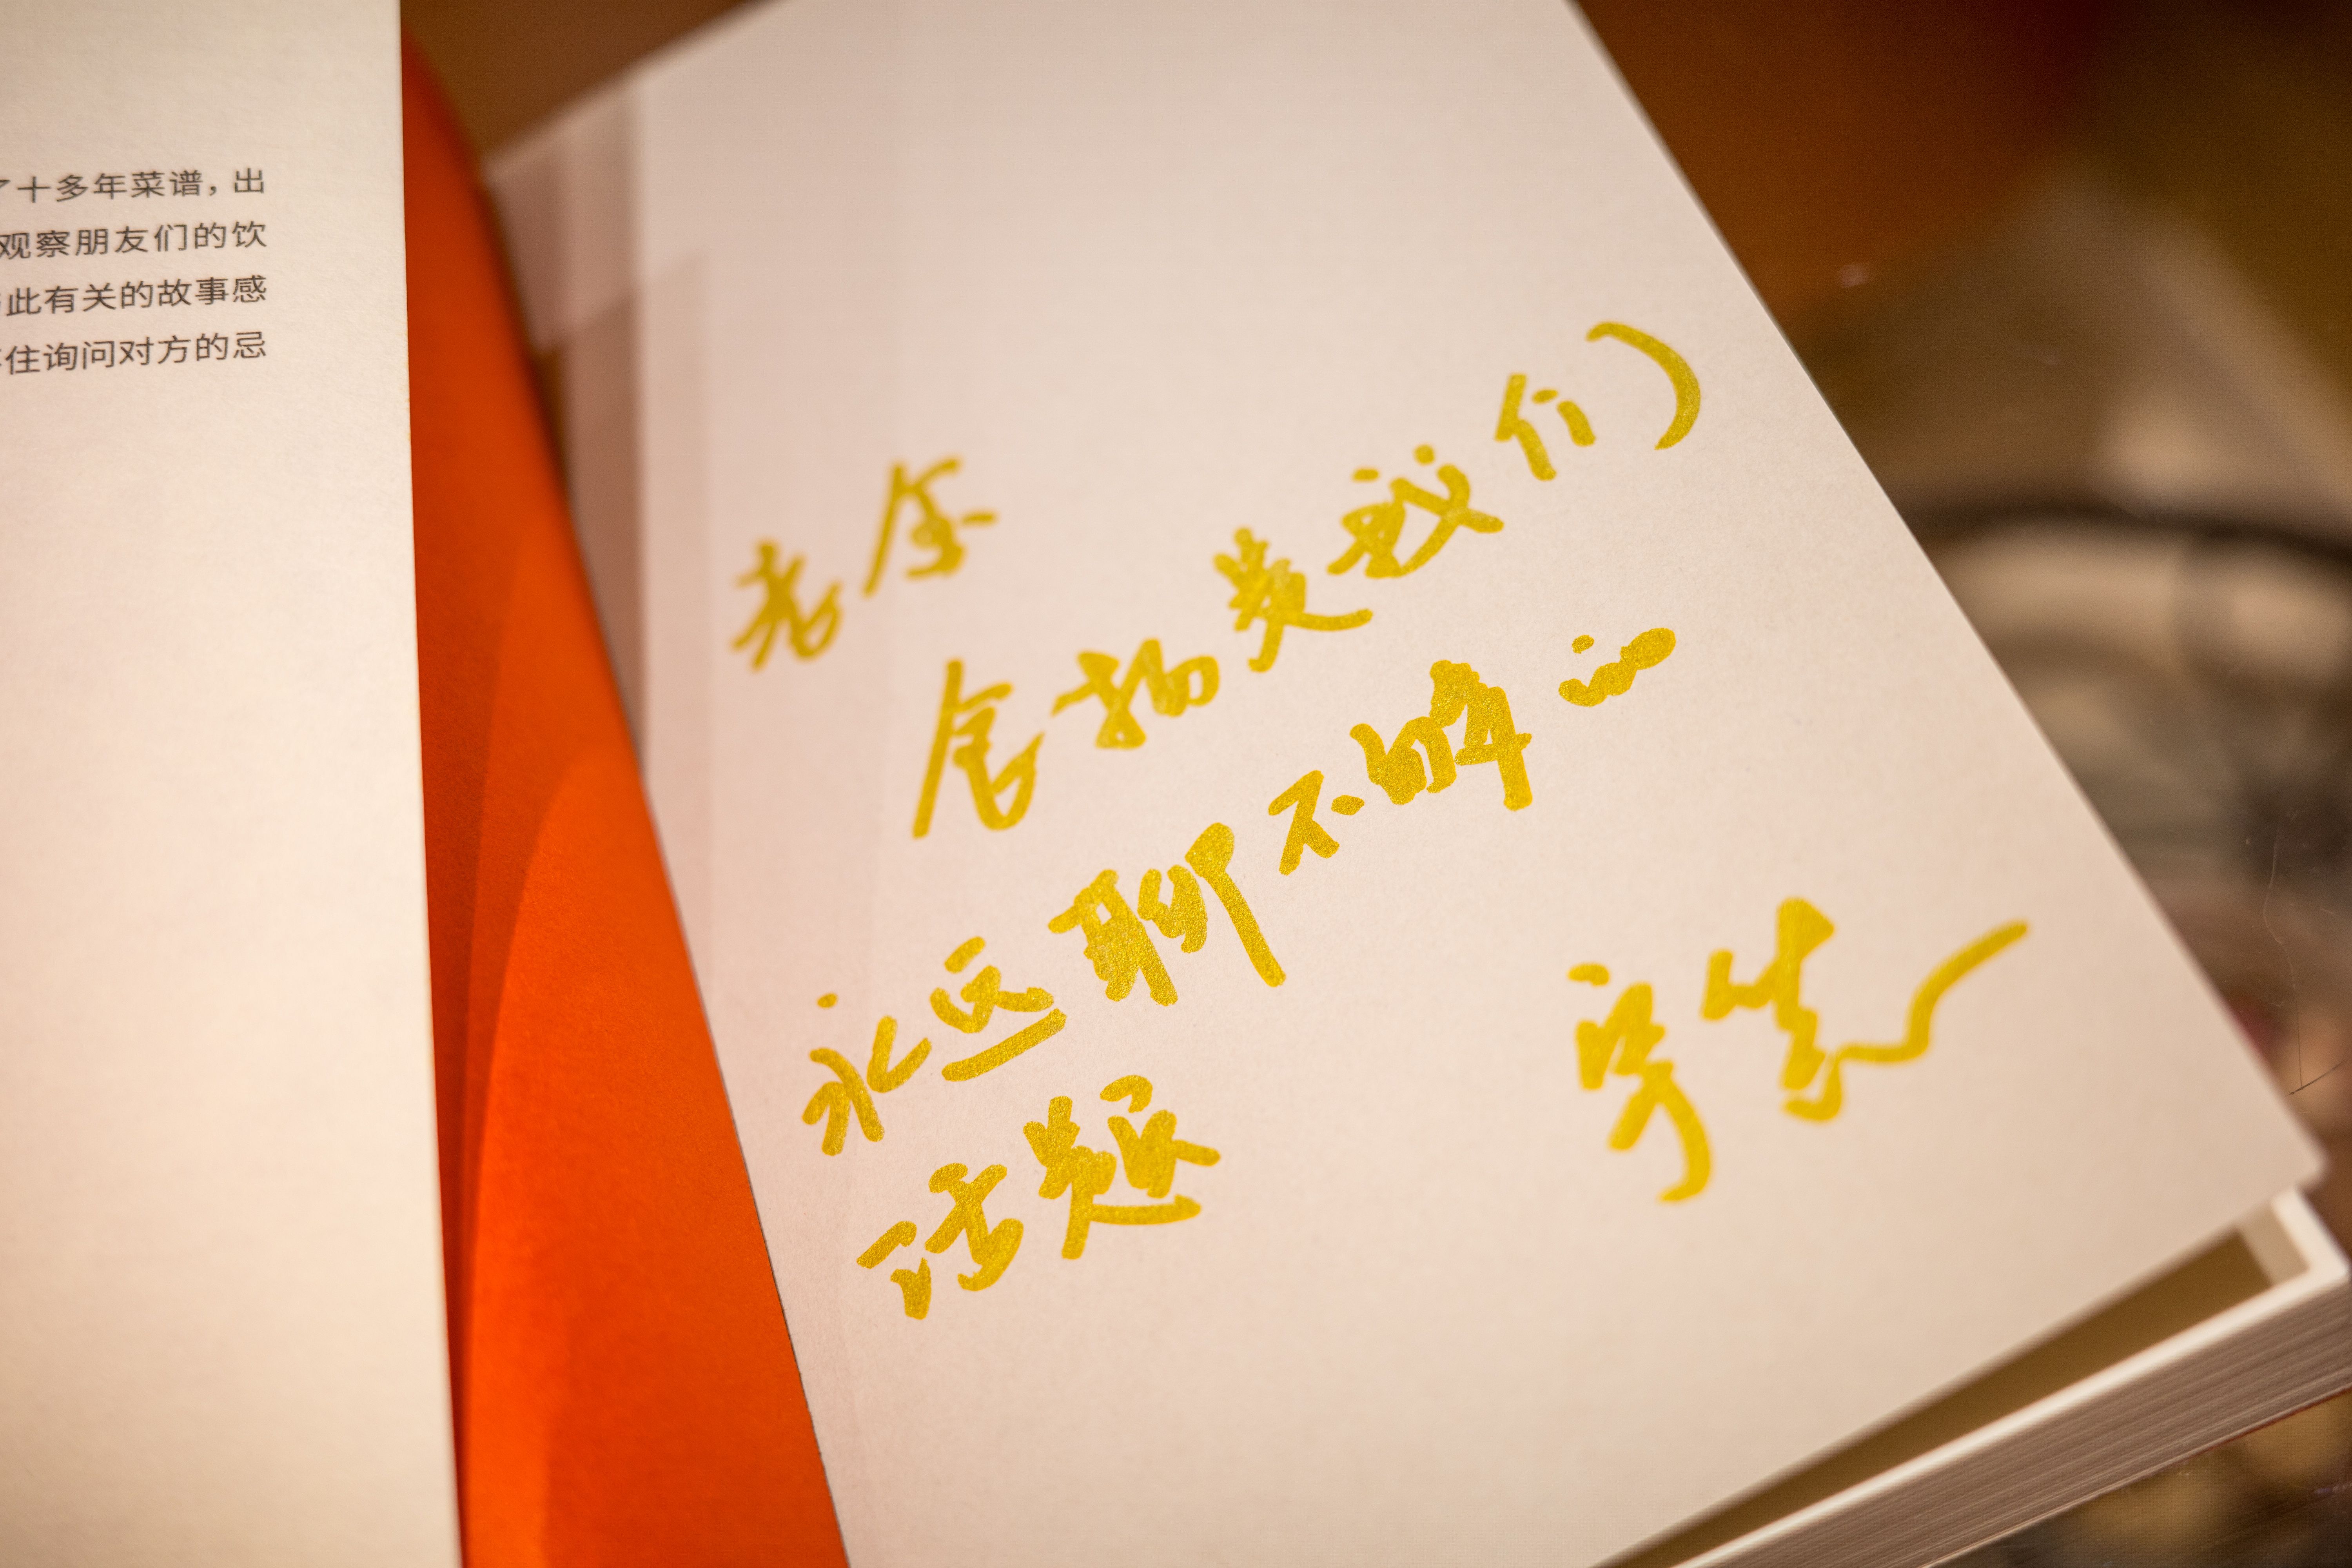 了十多年菜谱，出
观察朋友们的饮
此有关的故事感
住询问对方的忌
老金
食物是我们
永远聊不够的
话题